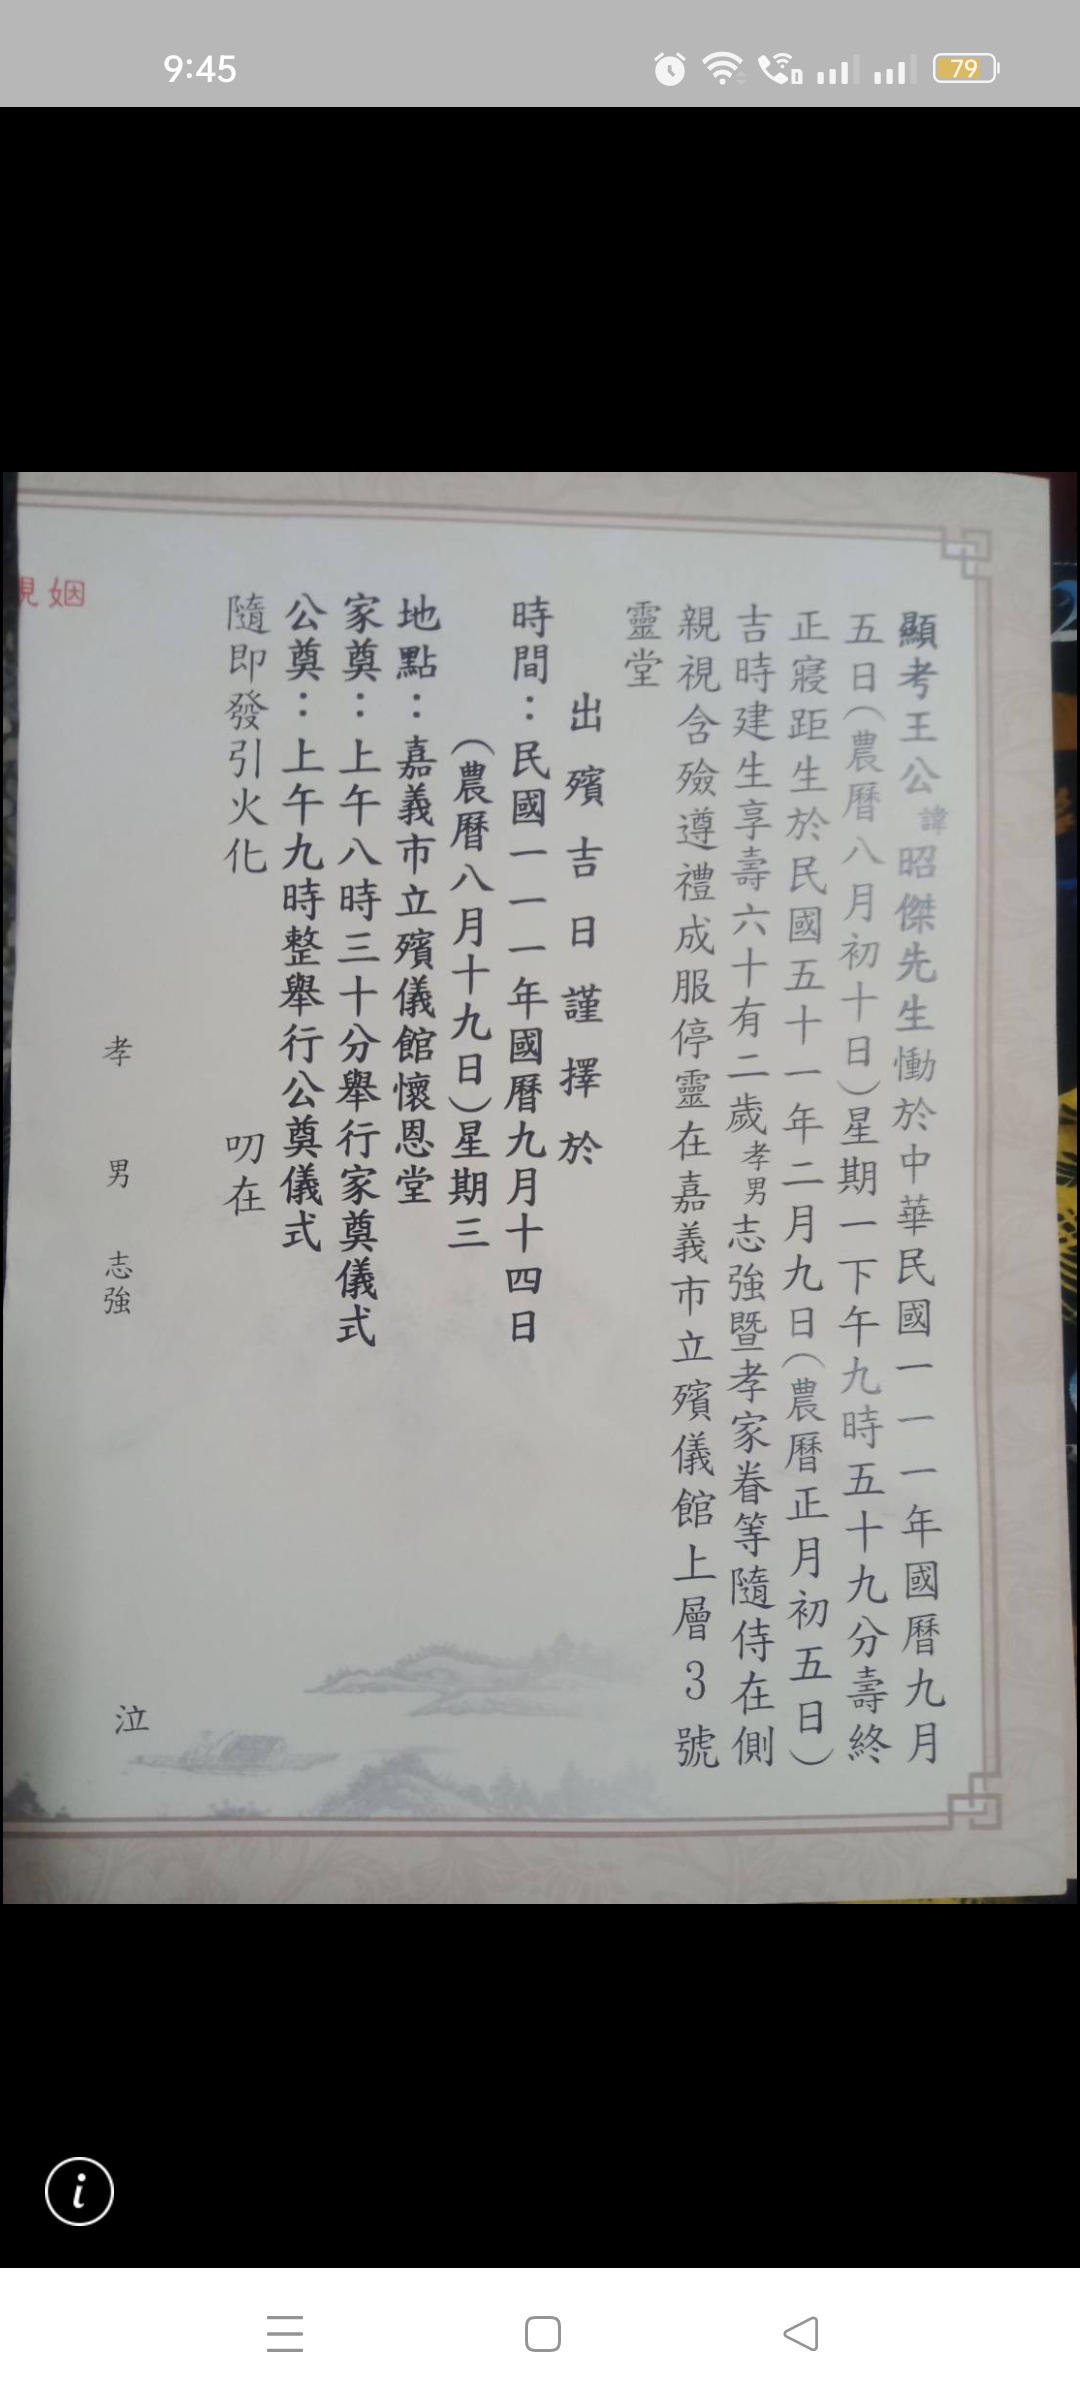 9:45
79
顯考王公諱昭傑先生慟於中華民國一一一年國曆九月
五日(農曆八月初十日)星期一下午九時五十九分壽終
正寢距生於民國五十一年二月九日(農曆正月初五日)
吉時建生享壽六十有二歲孝男志強暨孝家眷等隨侍在側
親視含殮遵禮成服停靈在嘉義市立殯儀館上層3號
靈堂
出殯吉日謹擇於
時間：民國一一一年國曆九月十四日
(農曆八月十九日)星期三
地點：嘉義市立殯儀館懷恩堂
家奠：上午八時三十分舉行家奠儀式
公奠：上午九時整舉行公奠儀式
隨即發引火化 叨在
孝男 志強 泣
姻